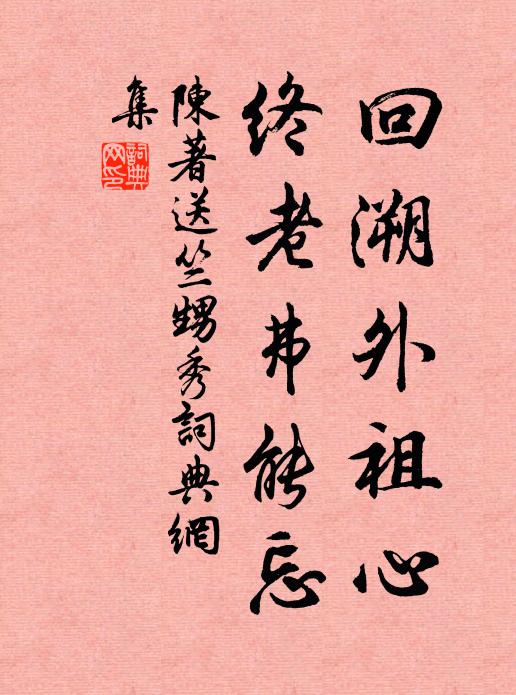 回溯外祖心
終老弗能忘
陳著送竺甥秀詞典網
集
詞典網印